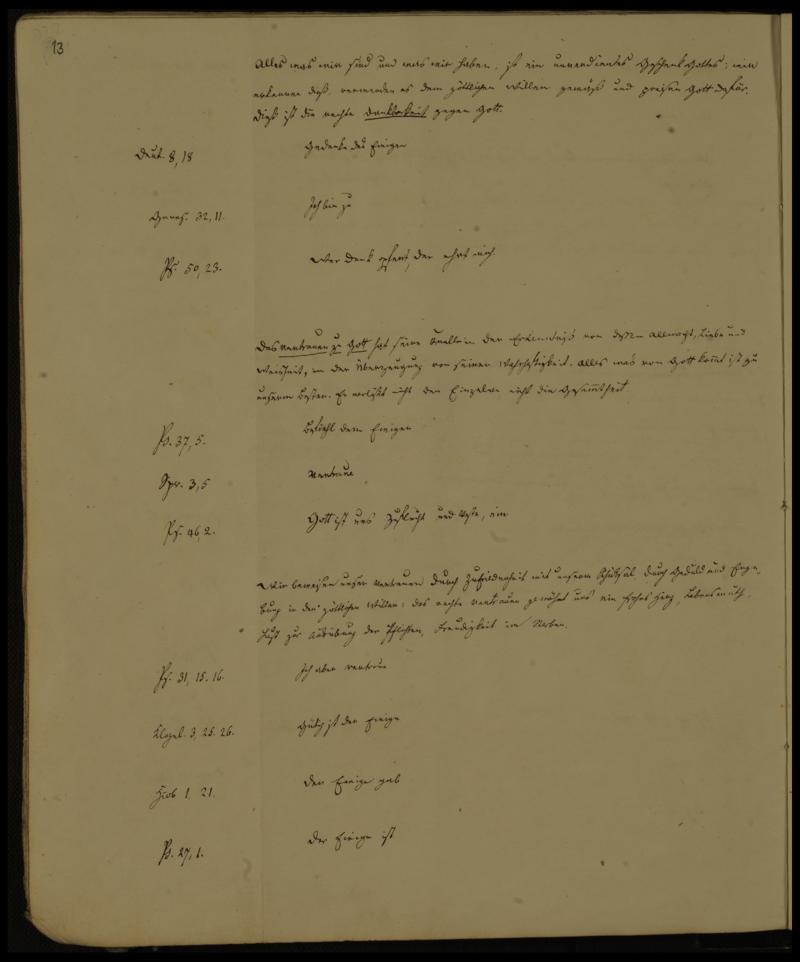 13
Alles was wir sind und was wir haben, ist ein unverdientes Geschenk Gottes; wir
erkennen dieß, verwenden es dem göttlichen Willen gemäß und preisen Gott dafür.
Dieß ist die rechte Dankbarkeit gegen Gott.
Deut. 8, 18 Gedenke des Ewigen
Genes. 32, 11. Ich bin zu
Ps. 50, 23. Wer Dank opfert, der ehrt mich.
Das Vertrauen zu Gott hat seine Quelle in der Erkenntniß von dessen Allmacht, Liebe und
Weisheit, in der Überzeugung von seiner Wahrhaftigkeit. Alles was von Gott kommt ist zu
unserm Besten. Er verläßt nicht den Einzelnen nicht die Gesammtheit
Ps. 37, 5. Befiehl dem Ewigen
Spr. 3, 5 Vertraue
Ps. 46, 2. Gott ist uns Zuflucht und Veste, ein
Wir beweisen unser Vertrauen durch Zufriedenheit mit unserm Schicksal, durch Geduld und Erge-
bung in den göttlichen Willen; das rechte Vertrauen gewährt uns ein frohes Herz, Lebensmuth,
Lust zur Ausübung der Pflichten, Freudigkeit im Sterben.
Ps. 31, 15. 16. Ich aber vertraue
Klagel. 3, 25. 26. Gütig ist der Ewige
Hiob 1, 21. Der Ewige gab
Ps. 27, 1. Der Ewige ist